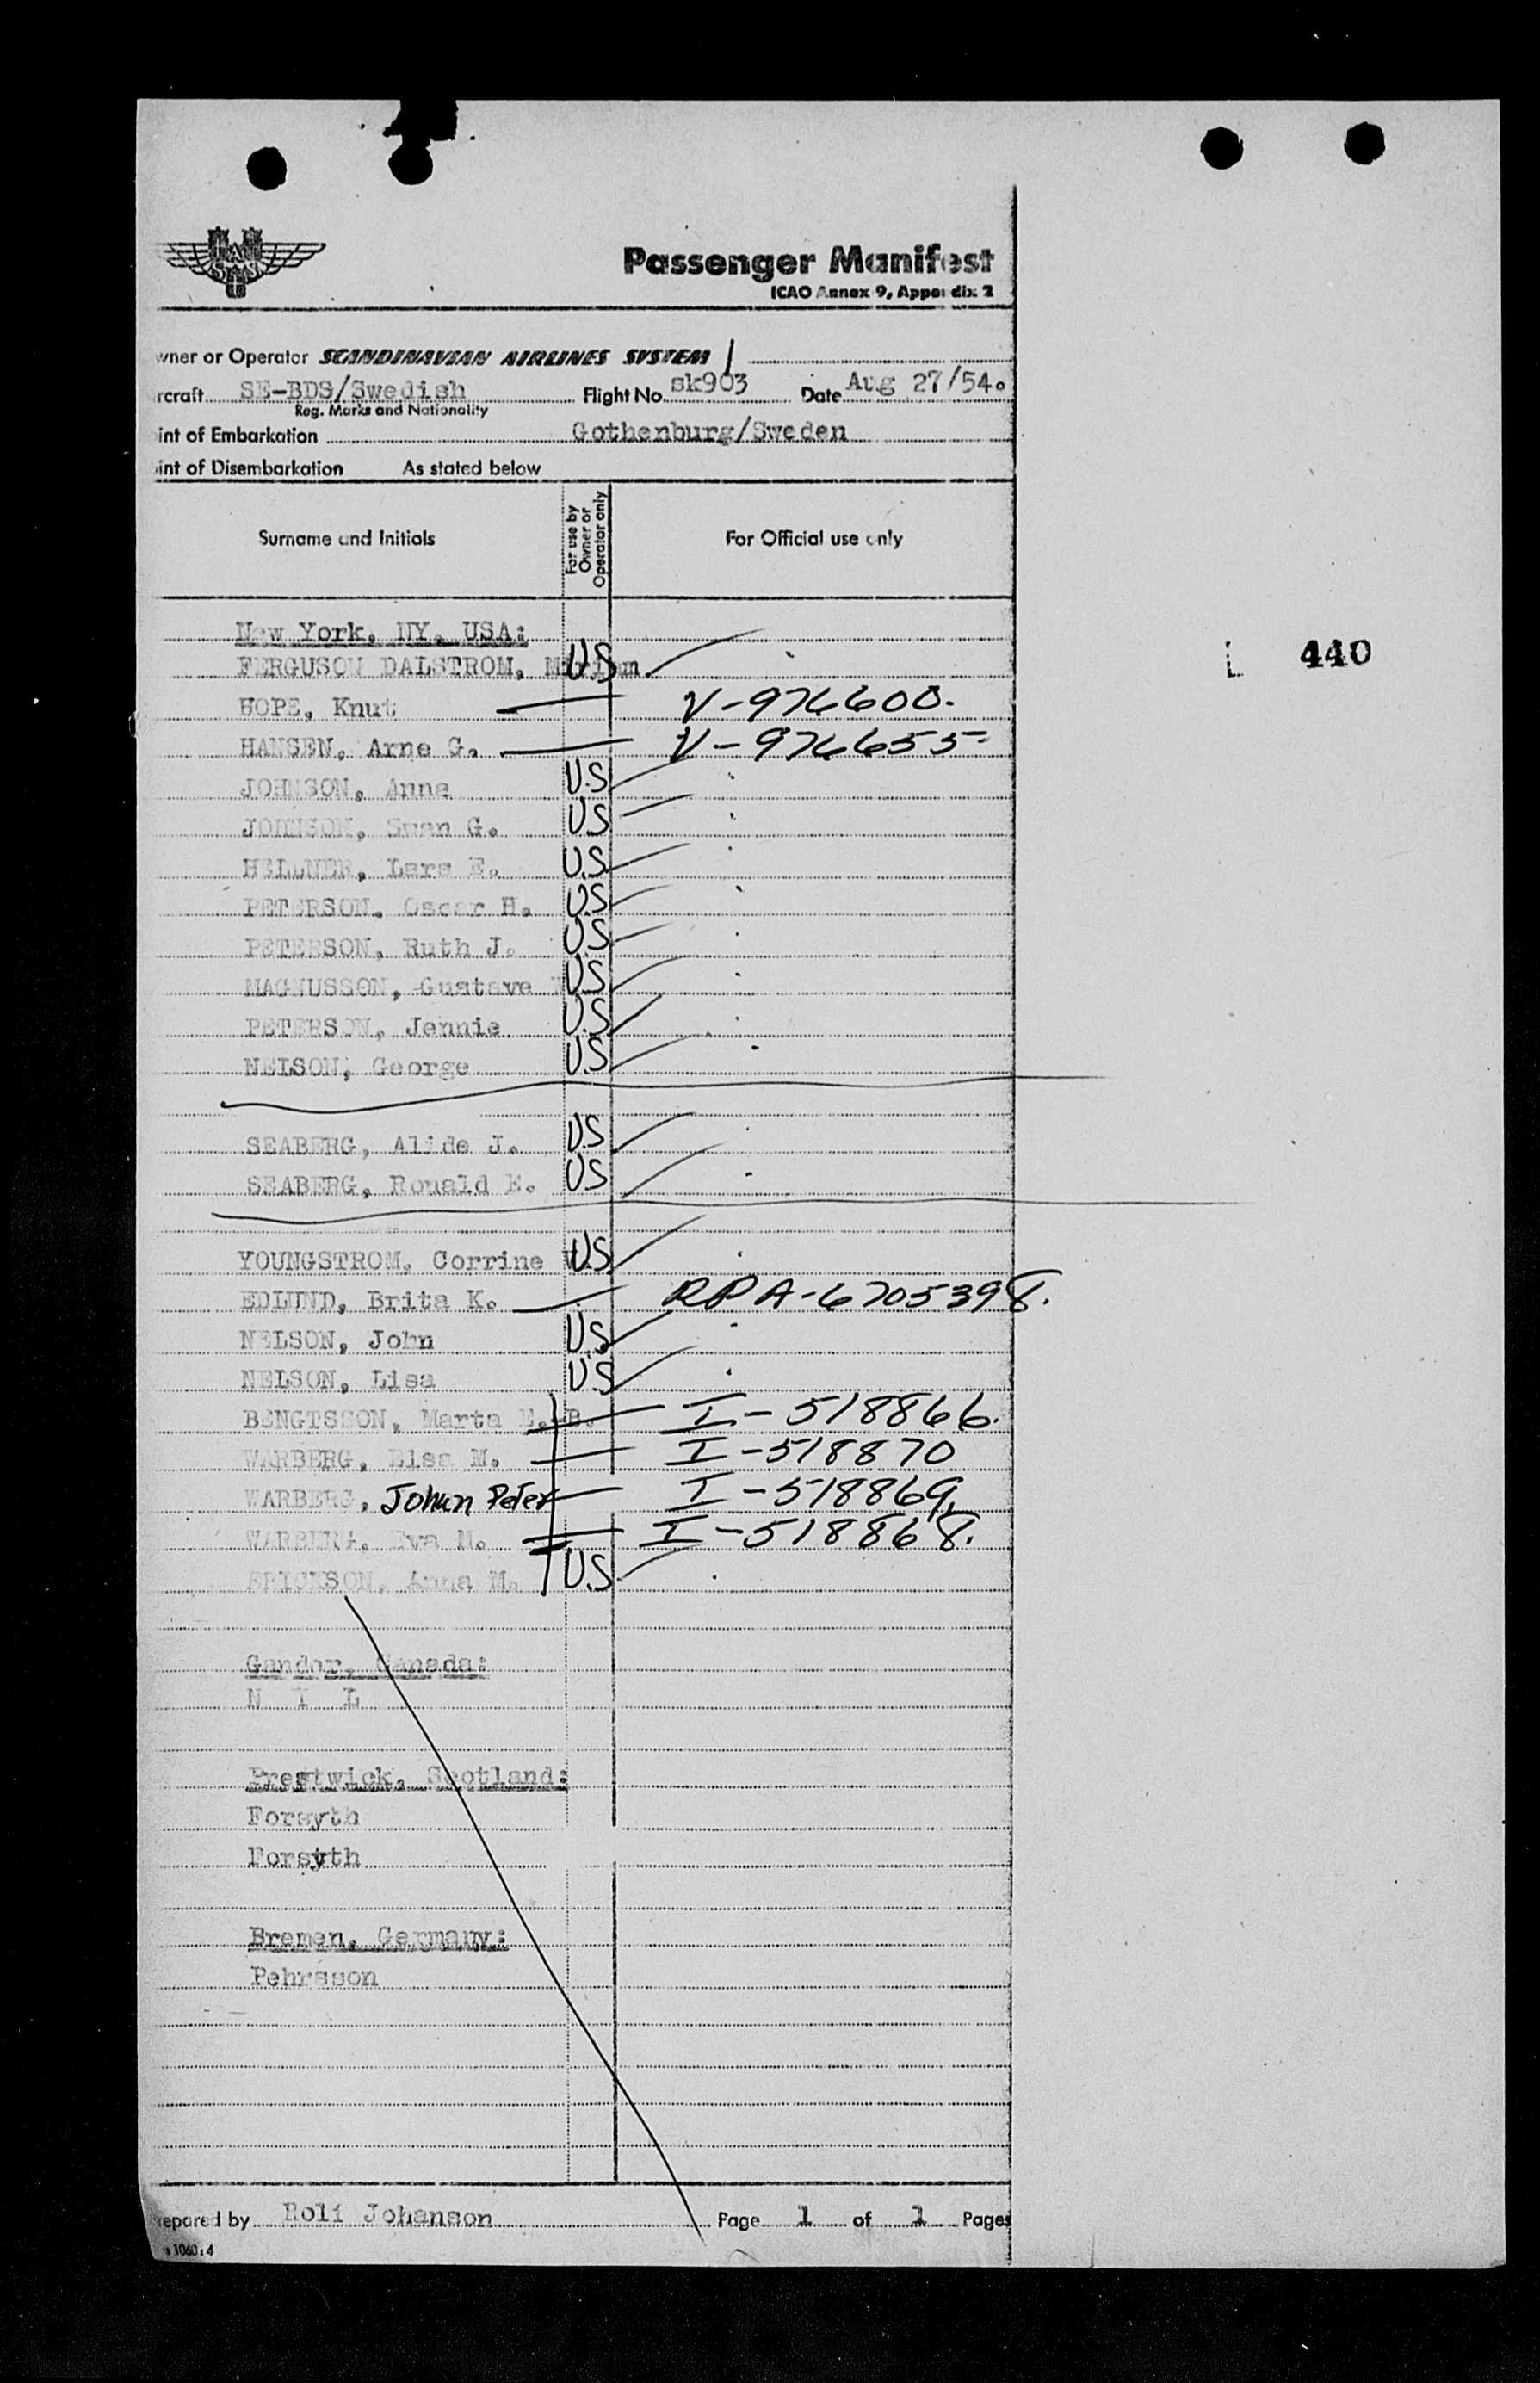 SAS
Passenger Manifest
ICAO Annex 9, Appendix 2
wner or Operator SCANDINAVIAN AIRLINES SYSTEM
rcraft SE-BDS/Swedish Flight No. sk903 Date Aug 27/54.
Reg. Marks and Nationality
int of Embarkation Gothenburg/Sweden
int of Disembarkation As stated below
Surname and Initials For use by Owner or Operator only For Official use only
New York, NY, USA:
FERGUSON DALSTROM, U.S
440
HOPE, Knut V-976600.
HANSEN, Arne G. V-976655
JOHNSON, Anna U.S
JOHNSON, Swan G. U.S
HELLNER, Lars E. U.S.
PETERSON, Oscar H. U.S
PETERSON, Ruth J. U.S
MAGNUSSON, Gustave U.S
PETERSON, Jennie U.S
NELSON, George U.S
SEABERG, Alide J. U.S
SEABERG, Rouald E. U.S
YOUNGSTROM, Corrine U.S
EDLUND, Brita K. RPA-6705398.
NELSON, John U.S
NELSON, Lisa U.S
BENGTSSON, Marta E. B. I-518866.
WARBERG, Elsa M. I-518870
WARBERG, Johan Peter I-518869.
WARBERG, Eva M. I-518868.
ERICKSON, Anna M. U.S
Gander, Canada:
N I L
Prestwick, Scotland:
Forsyth
Forsyth
Bremen, Germany:
Pehrsson
repared by Rolf Johanson Page 1 of 1 Pages
s 1060:4